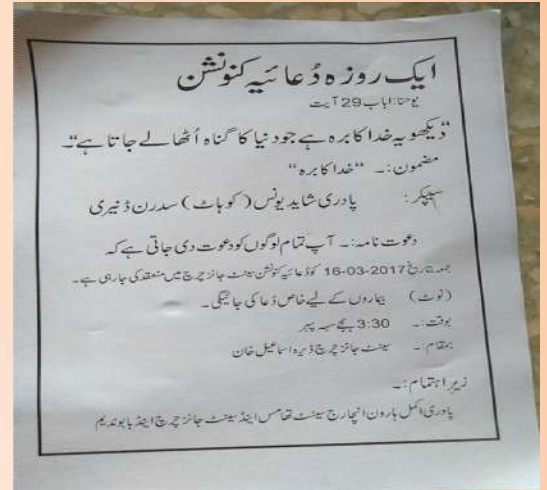 ایک روزہ دُعائیہ کنونشن
یوحنا: 1باب 29 آیت
"دیکھو یہ خدا کا برہ ہے جو دنیا کا گناہ اُٹھا لے جاتا ہے"۔
مضمون:۔ "خدا کا برہ"
سپیکر: پادری شاہد یونس (کوہاٹ) سدرن ڈنیری
دعوت نامہ:۔ آپ تمام لوگوں کو دعوت دی جاتی ہے کہ
جمعہ بتاریخ 16-03-2017 کو دُعائیہ کنونشن سینٹ جانز چرچ میں منعقد کی جا رہی ہے۔
(نوٹ) بیماروں کے لیے خاص دُعا کی جائیگی۔
بوقت:۔ 3:30 بجے سہ پہر
بمقام:۔ سینٹ جانز چرچ ڈیرہ اسماعیل خان
زیر اہتمام:۔
پادری اکمل ہارون انچارج سینٹ تھامس اینڈ سینٹ جانز چرچ اینڈ بابو ندیم